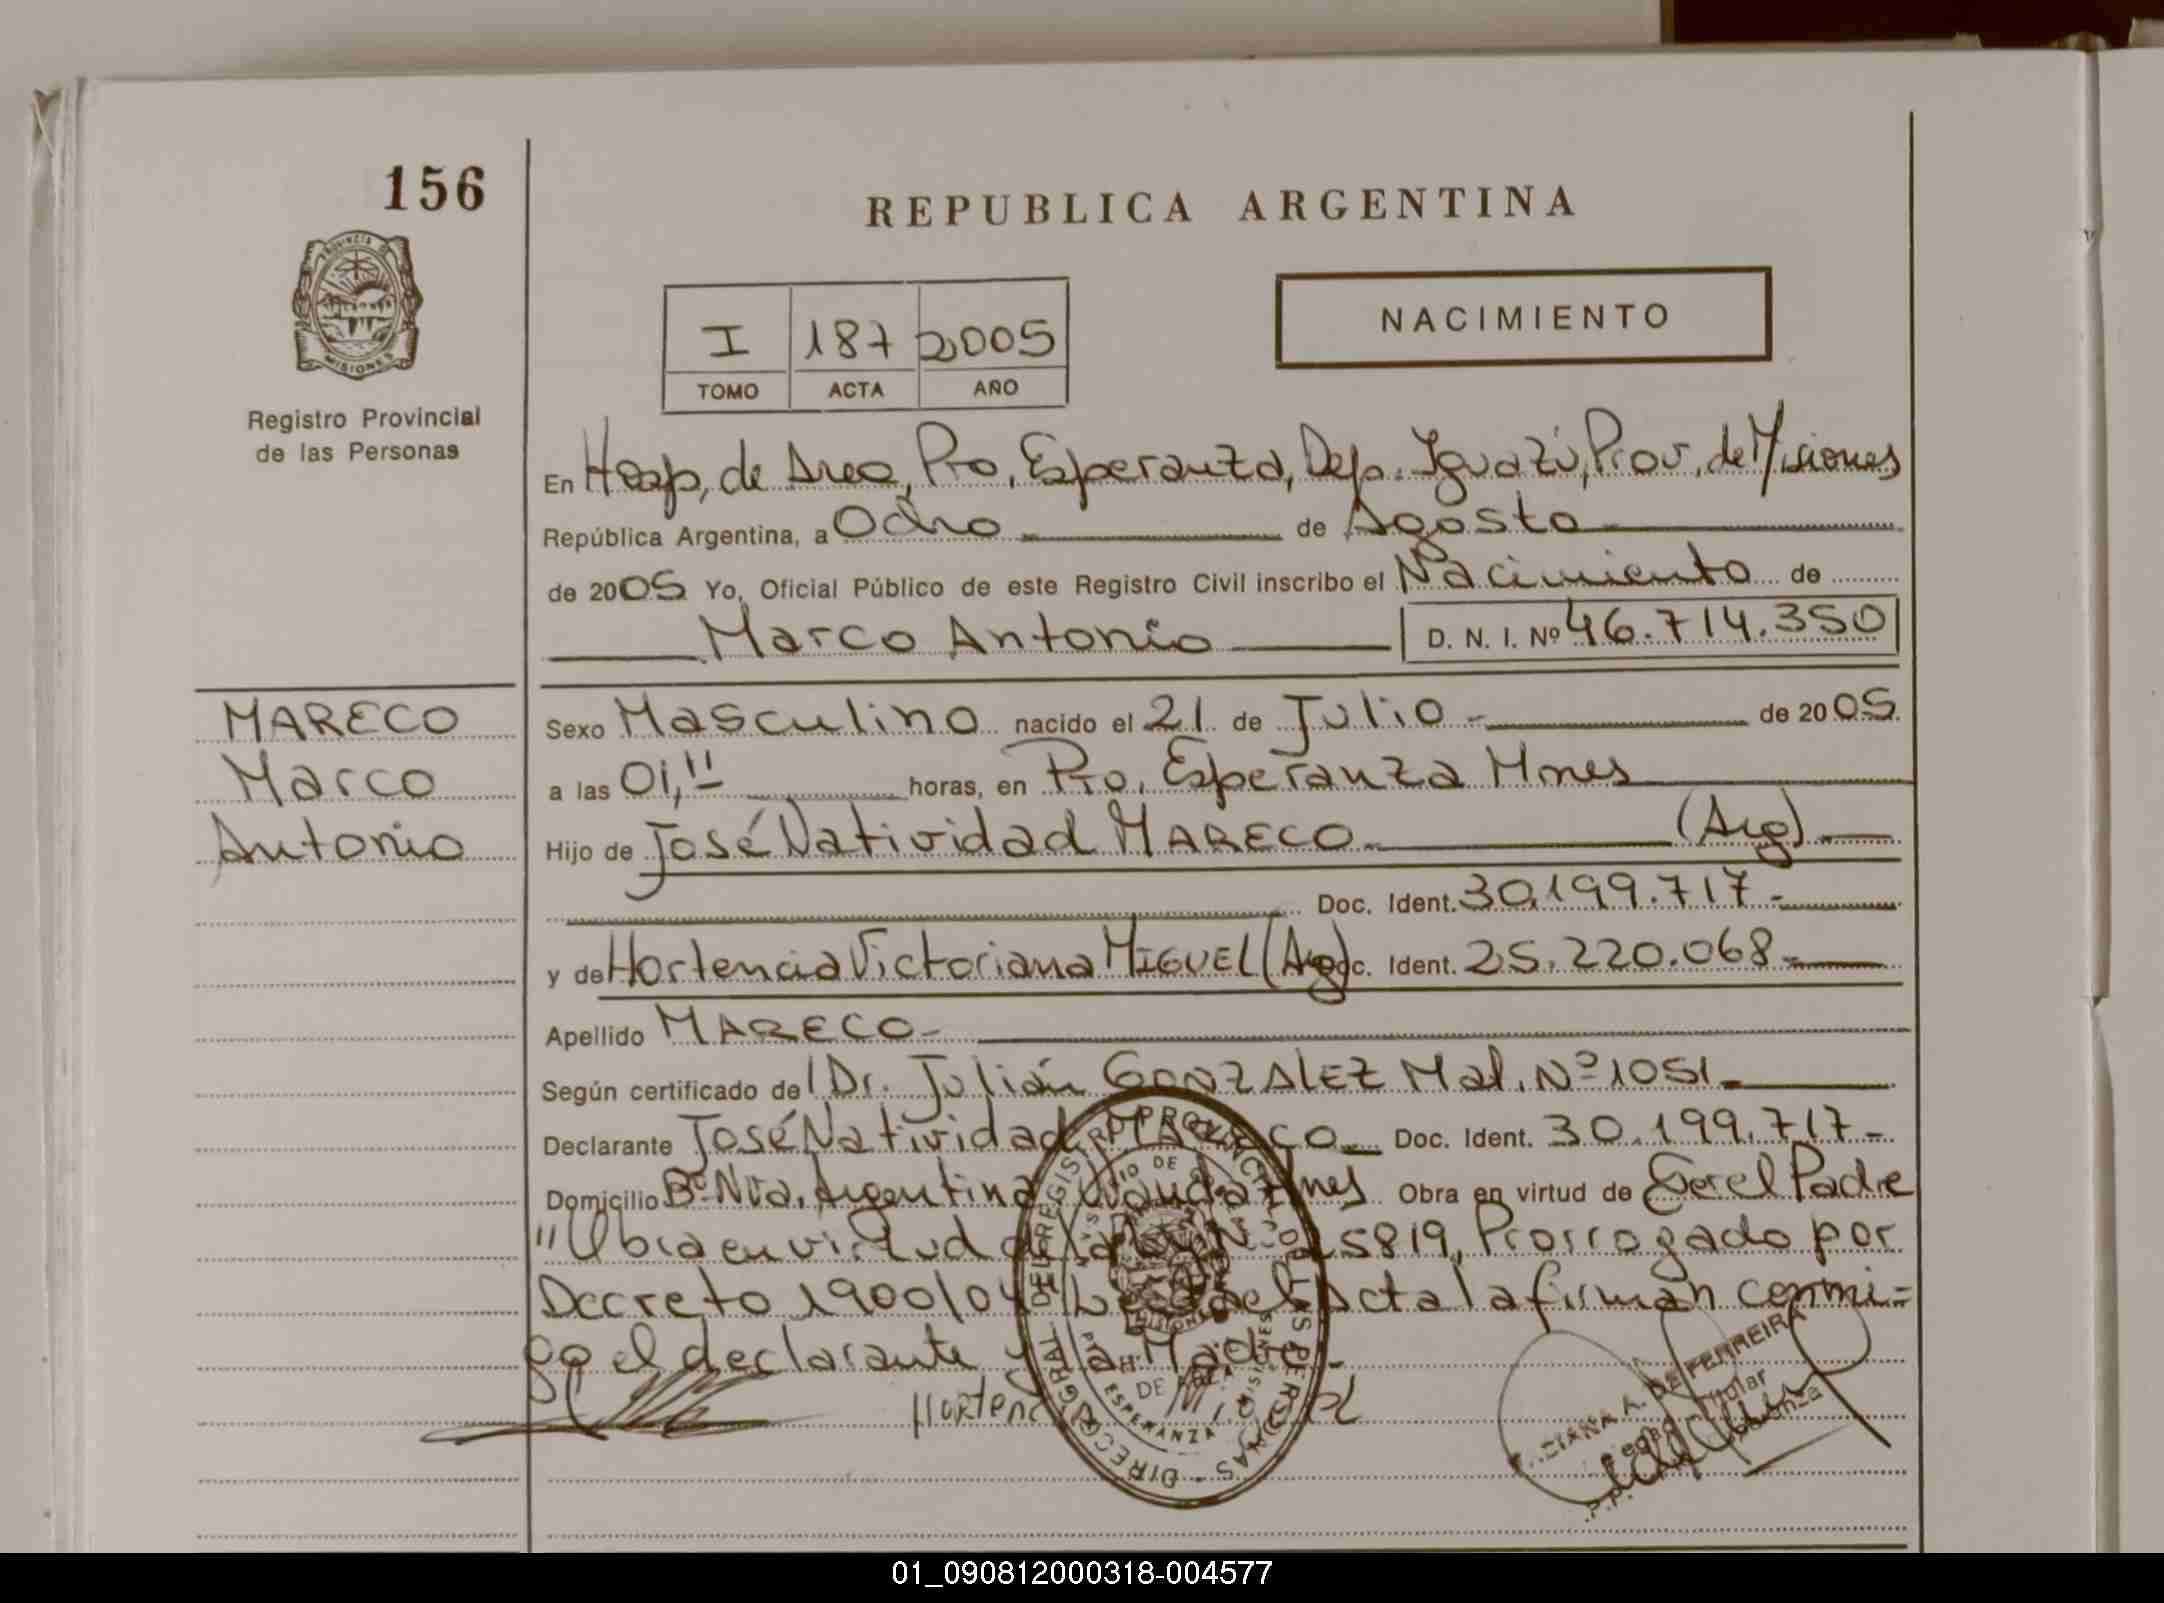 156
REPUBLICA ARGENTINA
PROVINCIA DE
MISIONES
Registro Provincial
de las Personas
I 187 2005
TOMO ACTA AÑO
NACIMIENTO
En Hosp, de Area, Pto, Esperanza, Dep. Iguazú, Prov, de Misiones
República Argentina, a Ocho de Agosto
de 2005 Yo, Oficial Público de este Registro Civil inscribo el Nacimiento de
Marco Antonio D. N. I. Nº 46.714.350
MARECO
Marco
Antonio
Sexo Masculino nacido el 21 de Julio - de 2005
a las 01,'' horas, en Pto. Esperanza Mnes
Hijo de José Natividad MARECO (Arg)
Doc. Ident. 30.199.717-
y de Hortencia Victoriana MIGUEL (Arg) Doc. Ident. 25.220.068-
Apellido MARECO-
Según certificado del Dr. Julián GONZALEZ Mat. Nº 1051-
Declarante José Natividad MARECO Doc. Ident. 30.199.717-
Domicilio Bº Nva. Argentina Wanda Mnes Obra en virtud de Ser el Padre
"Obra en virtud de la Ley Nº 25819, Prorrogado por
Decreto 1900/04 Leida el Acta la firman conmi-
go el declarante y la Madre-
Hortenc
DIREC. GRAL. DEL REGISTRO PROVINCIAL DE LAS PERSONAS
MISIONES
ESPERANZA
A. DE FERREIRA
Titular
01_090812000318-004577